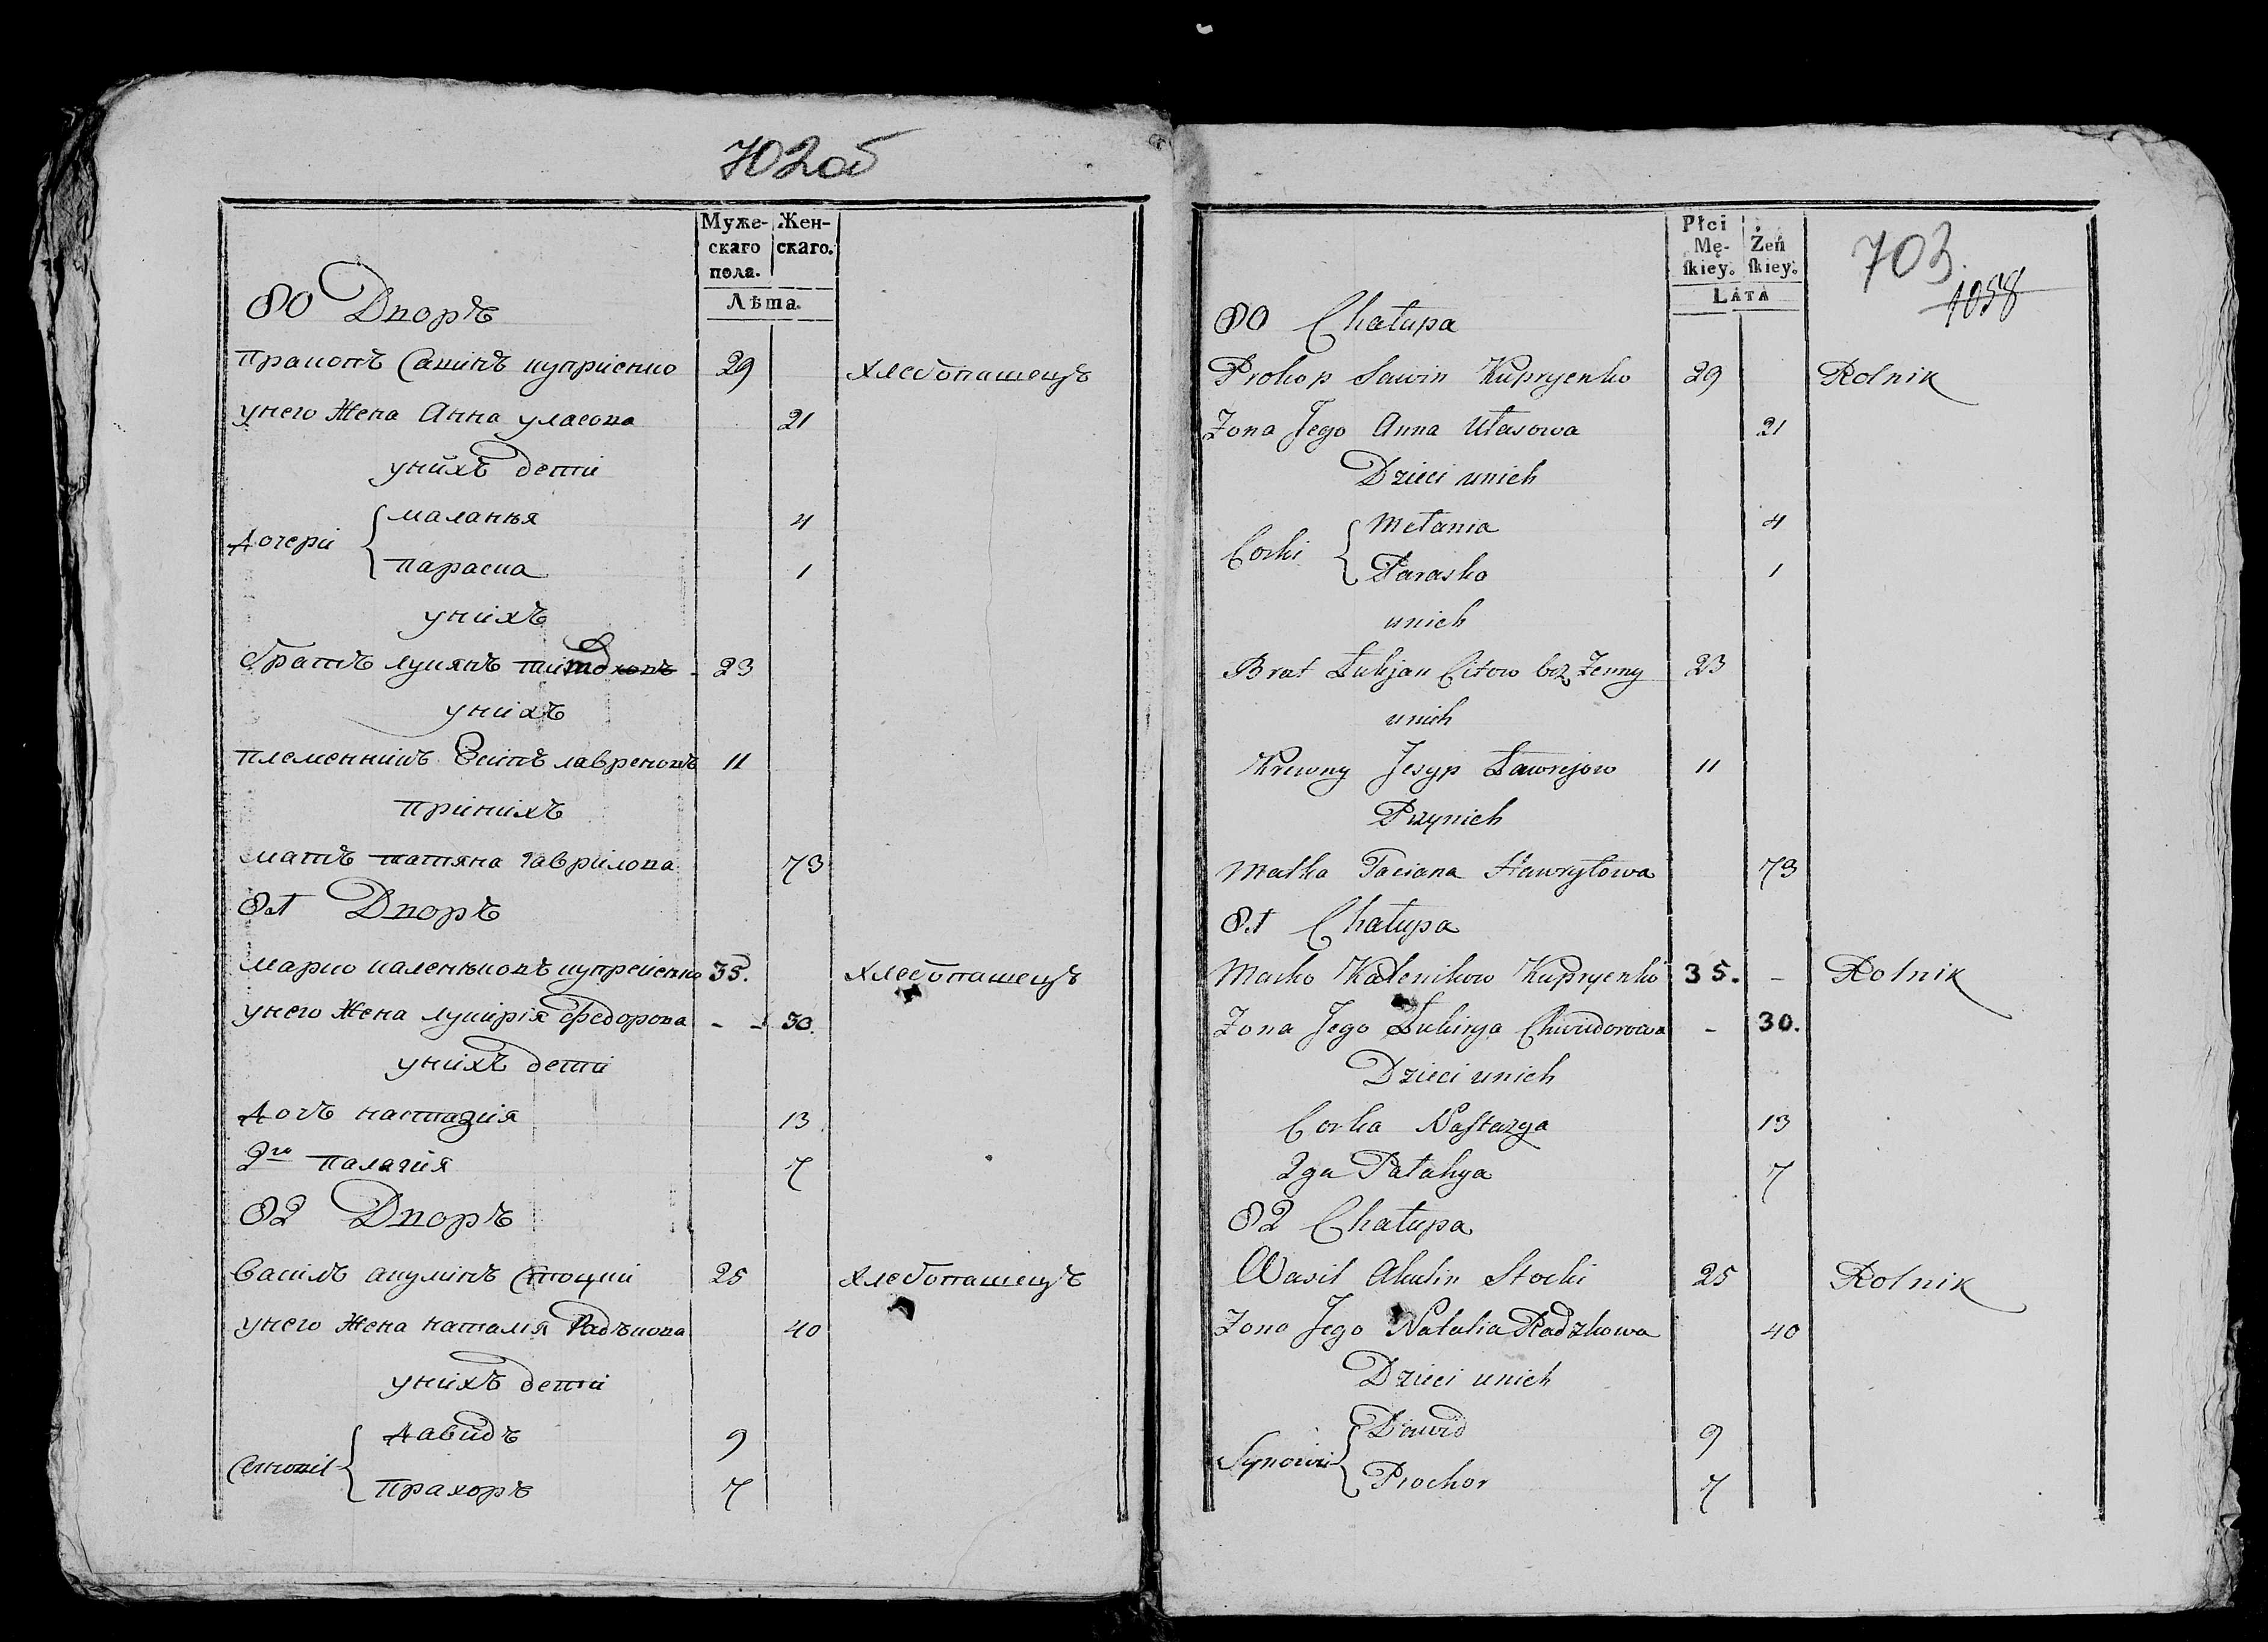 702об
Муже-скаго пола. Жен-скаго.
Лѣта.
80 Дворъ
Пракопъ Савинъ куприенко 29 хлебопашецъ
унего Жена Анна уласова 21
унихъ дети
Дочери { маланья 4
параска 1
унихъ
братъ лукянъ 23
унихъ
племенникъ Есипъ лавреновъ 11
принихъ
мать татяна гаврилова 73
81 Дворъ
марко каленьковъ купреенко 35. хлебопашецъ
унего Жена лукирія Федорова - - 30.
унихъ дети
Дочь настазия 13
2го палагия 7
82 Дворъ
Василь акулинъ Стоцкий 25 хлебопашецъ
унего Жена наталия Радькова 40
унихъ дети
{ Давидъ 9
Прахоръ 7
Płci Mę-skiey. Żeń skiey.
LATA
703.
1058
80 Chałupa
Prokop Sawin Kupryenko 29 Rolnik
Zona Jego Anna Ułasowa 21
Dzieci unich
Corki { Mełania 4
Paraska 1
unich
Brat Łukjan Citow bez Zenny 23
unich
Krewny Jesyp Ławrejow 11
Przynich
Matka Taciana Hawryłowa 73
81 Chałupa
Marko Kalenikow Kupryenko 35. - Rolnik
Zona Jego Łukirya Chwidorowa - 30.
Dzieci unich
Corka Nastazya 13
2ga Pałahya 7
82 Chałupa
Wasil Akulin Stocki 25 Rolnik
Zona Jego Natalia Radzkowa 40
Dzieci unich
Synowie { Dawid 9
Prochor 7